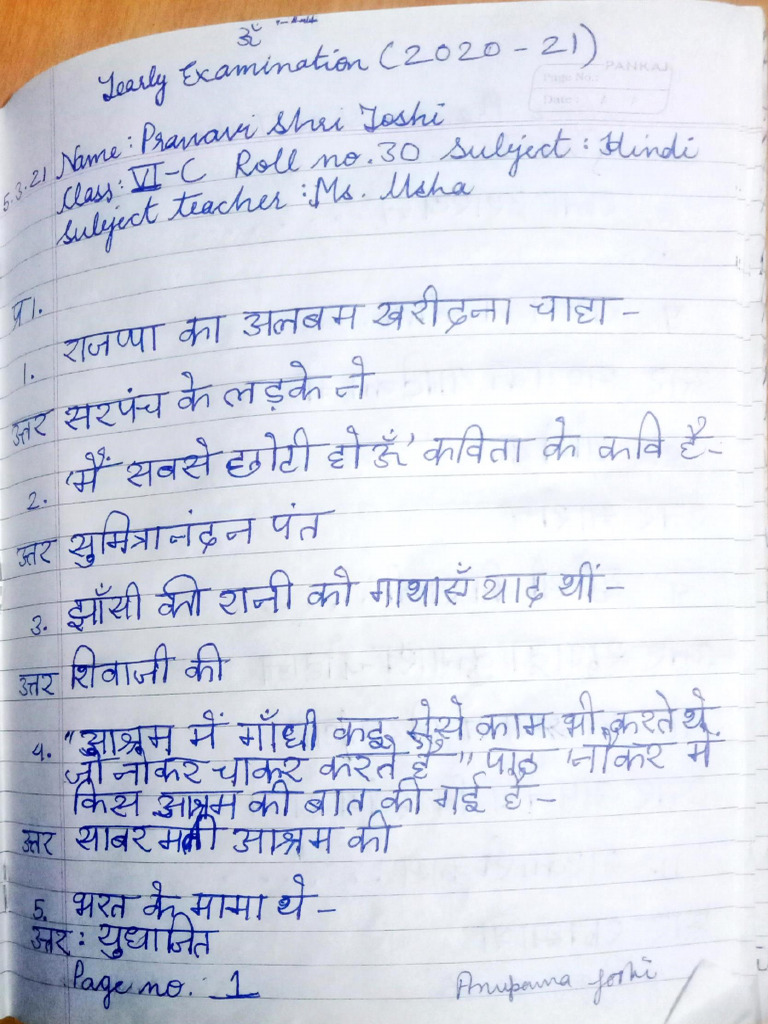 ॐ
Yearly Examination (2020-21)
PANKAJ
Page No.:
Date: / /
5.3.21 Name: Pranavi Shri Joshi
Class: VI-C Roll no. 30 Subject: Hindi
Subject teacher: Ms. Usha
प्र1.
1. राजप्पा का अलबम खरीदना चाहा -
उत्तर सरपंच के लड़के ने
2. 'मैं सबसे छोटी होऊँ' कविता के कवि है -
उत्तर सुमित्रानंदन पंत
3. झाँसी की रानी को गाथाएँ याद थीं -
उत्तर शिवाजी की
4. "आश्रम में गाँधी कइ ऐसे काम भी करते थे
जो नौकर चाकर करते हैं" पाठ 'नौकर में
किस आश्रम की बात की गई है -
उत्तर साबरमती आश्रम की
5. भरत के मामा थे -
उत्तर: युधाजित
Page no.: 1
Anupama Joshi